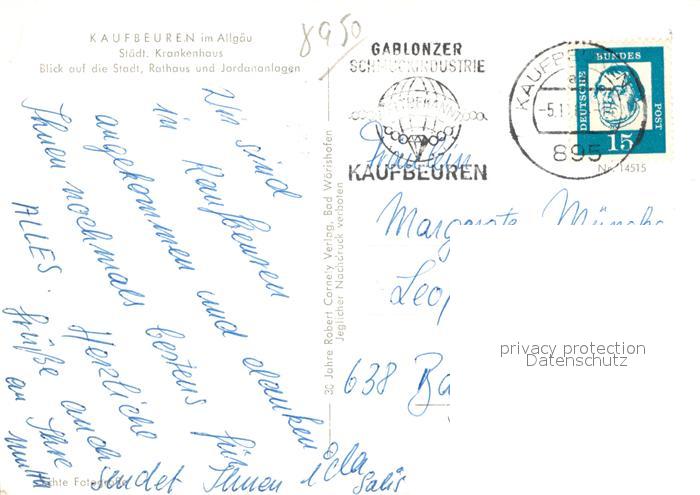 KAUFBEUREN im Allgäu
Städt. Krankenhaus
Blick auf die Stadt, Rathaus und Jordananlagen
8950
GABLONZER
SCHMUCKINDUSTRIE
KAUFBEUREN
KAUFBE
-5.1
895
DEUTSCHE
BUNDES
POST
15
Nr. 14515
Wir sind
in Kaufbeuren
angekommen und danken
Ihnen nochmals bestens für
ALLES. Herzliche
Grüße auch
an Ihre
Mutti
sendet Ihnen
30 Jahre Robert Cornely Verlag, Bad Wörishofen
Jeglicher Nachdruck verboten
Echte Fotografie
Fräulein
Margarete
638 Ba
privacy protection
Datenschutz